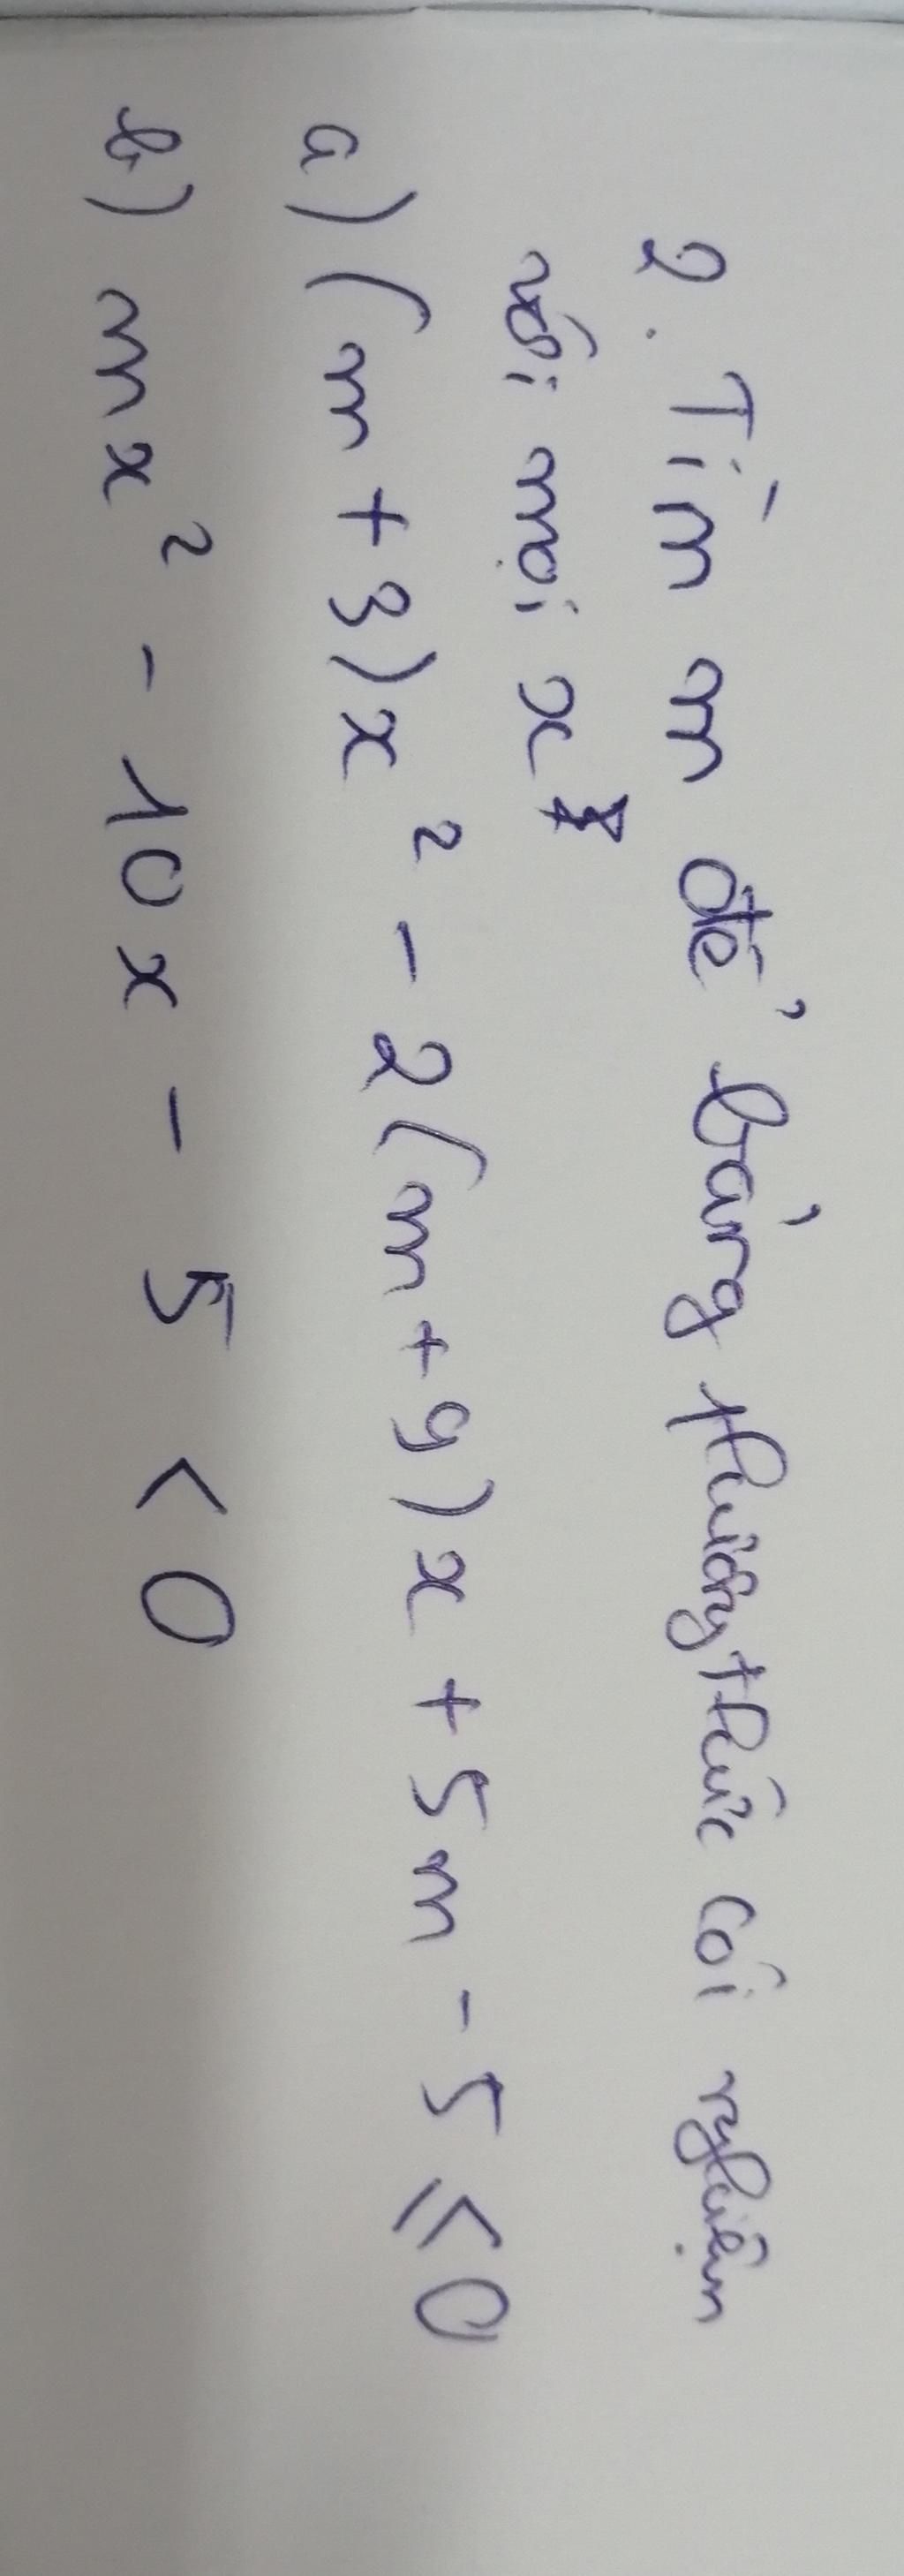 2. Tìm m để bảng thường thức cói nghiệm
với mọi x
a) (m + 3)x² - 2(m + 9)x + 5m - 5 ≤ 0
b) mx² - 10x - 5 < 0